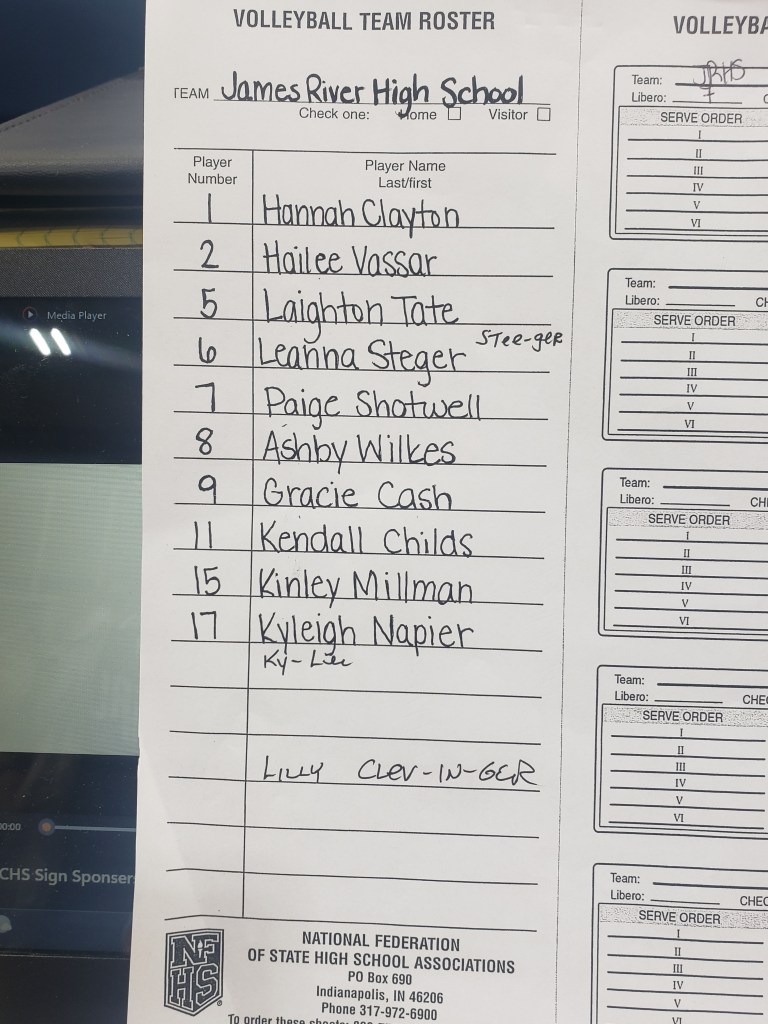 VOLLEYBALL TEAM ROSTER
TEAM James River High School
Check one: Home Visitor
Player Number
Player Name
Last/first
1 Hannah Clayton
2 Hailee Vassar
5 Laighton Tate
6 Leanna Steger STee-geR
7 Paige Shotwell
8 Ashby Wilkes
9 Gracie Cash
11 Kendall Childs
15 Kinley Millman
17 Kyleigh Napier
Ky-Lee
LILLY CLEV-IN-GER
NFHS
NATIONAL FEDERATION
OF STATE HIGH SCHOOL ASSOCIATIONS
PO Box 690
Indianapolis, IN 46206
Phone 317-972-6900
To order these sheets:
VOLLEYBA
Team: JRHS
Libero: 7 C
SERVE ORDER
I
II
III
IV
V
VI
Team:
Libero: CH
SERVE ORDER
I
II
III
IV
V
VI
Team:
Libero: CHE
SERVE ORDER
I
II
III
IV
V
VI
Team:
Libero: CHEC
SERVE ORDER
I
II
III
IV
V
VI
Team:
Libero: CHEC
SERVE ORDER
I
II
III
IV
V
VI
Media Player
00:00
CHS Sign Sponser